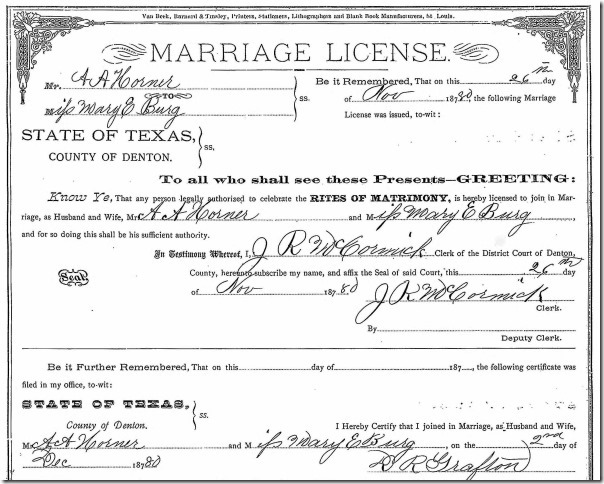 Van Beek, Barnard & Tinsley, Printers, Stationers, Lithographers and Blank Book Manufacturers, St Louis.
MARRIAGE LICENSE.
Mr. A A Horner
TO
Miss Mary E Burg
ss.
Be it Remembered, That on this 26th day
of Nov 18780, the following Marriage
License was issued, to-wit:
STATE OF TEXAS,
COUNTY OF DENTON.
ss.
To all who shall see these Presents—GREETING:
Know Ye, That any person legally authorised to celebrate the RITES OF MATRIMONY, is hereby licensed to join in Mar-
riage, as Husband and Wife, Mr. A A Horner and Miss Mary E Burg
and for so doing this shall be his sufficient authority.
In Testimony Whereof, I, J R McCormick Clerk of the District Court of Denton
County, hereunto subscribe my name, and affix the Seal of said Court, this 26th day
Seal
of Nov 18780
J R McCormick
Clerk.
By
Deputy Clerk.
Be it Further Remembered, That on this day of 187 , the following certificate was
filed in my office, to-wit:
STATE OF TEXAS,
County of Denton.
ss.
I Hereby Certify that I joined in Marriage, as Husband and Wife,
Mr. A A Horner and Miss Mary E Burg, on the 2nd day of
Dec 18780
D R Grafton